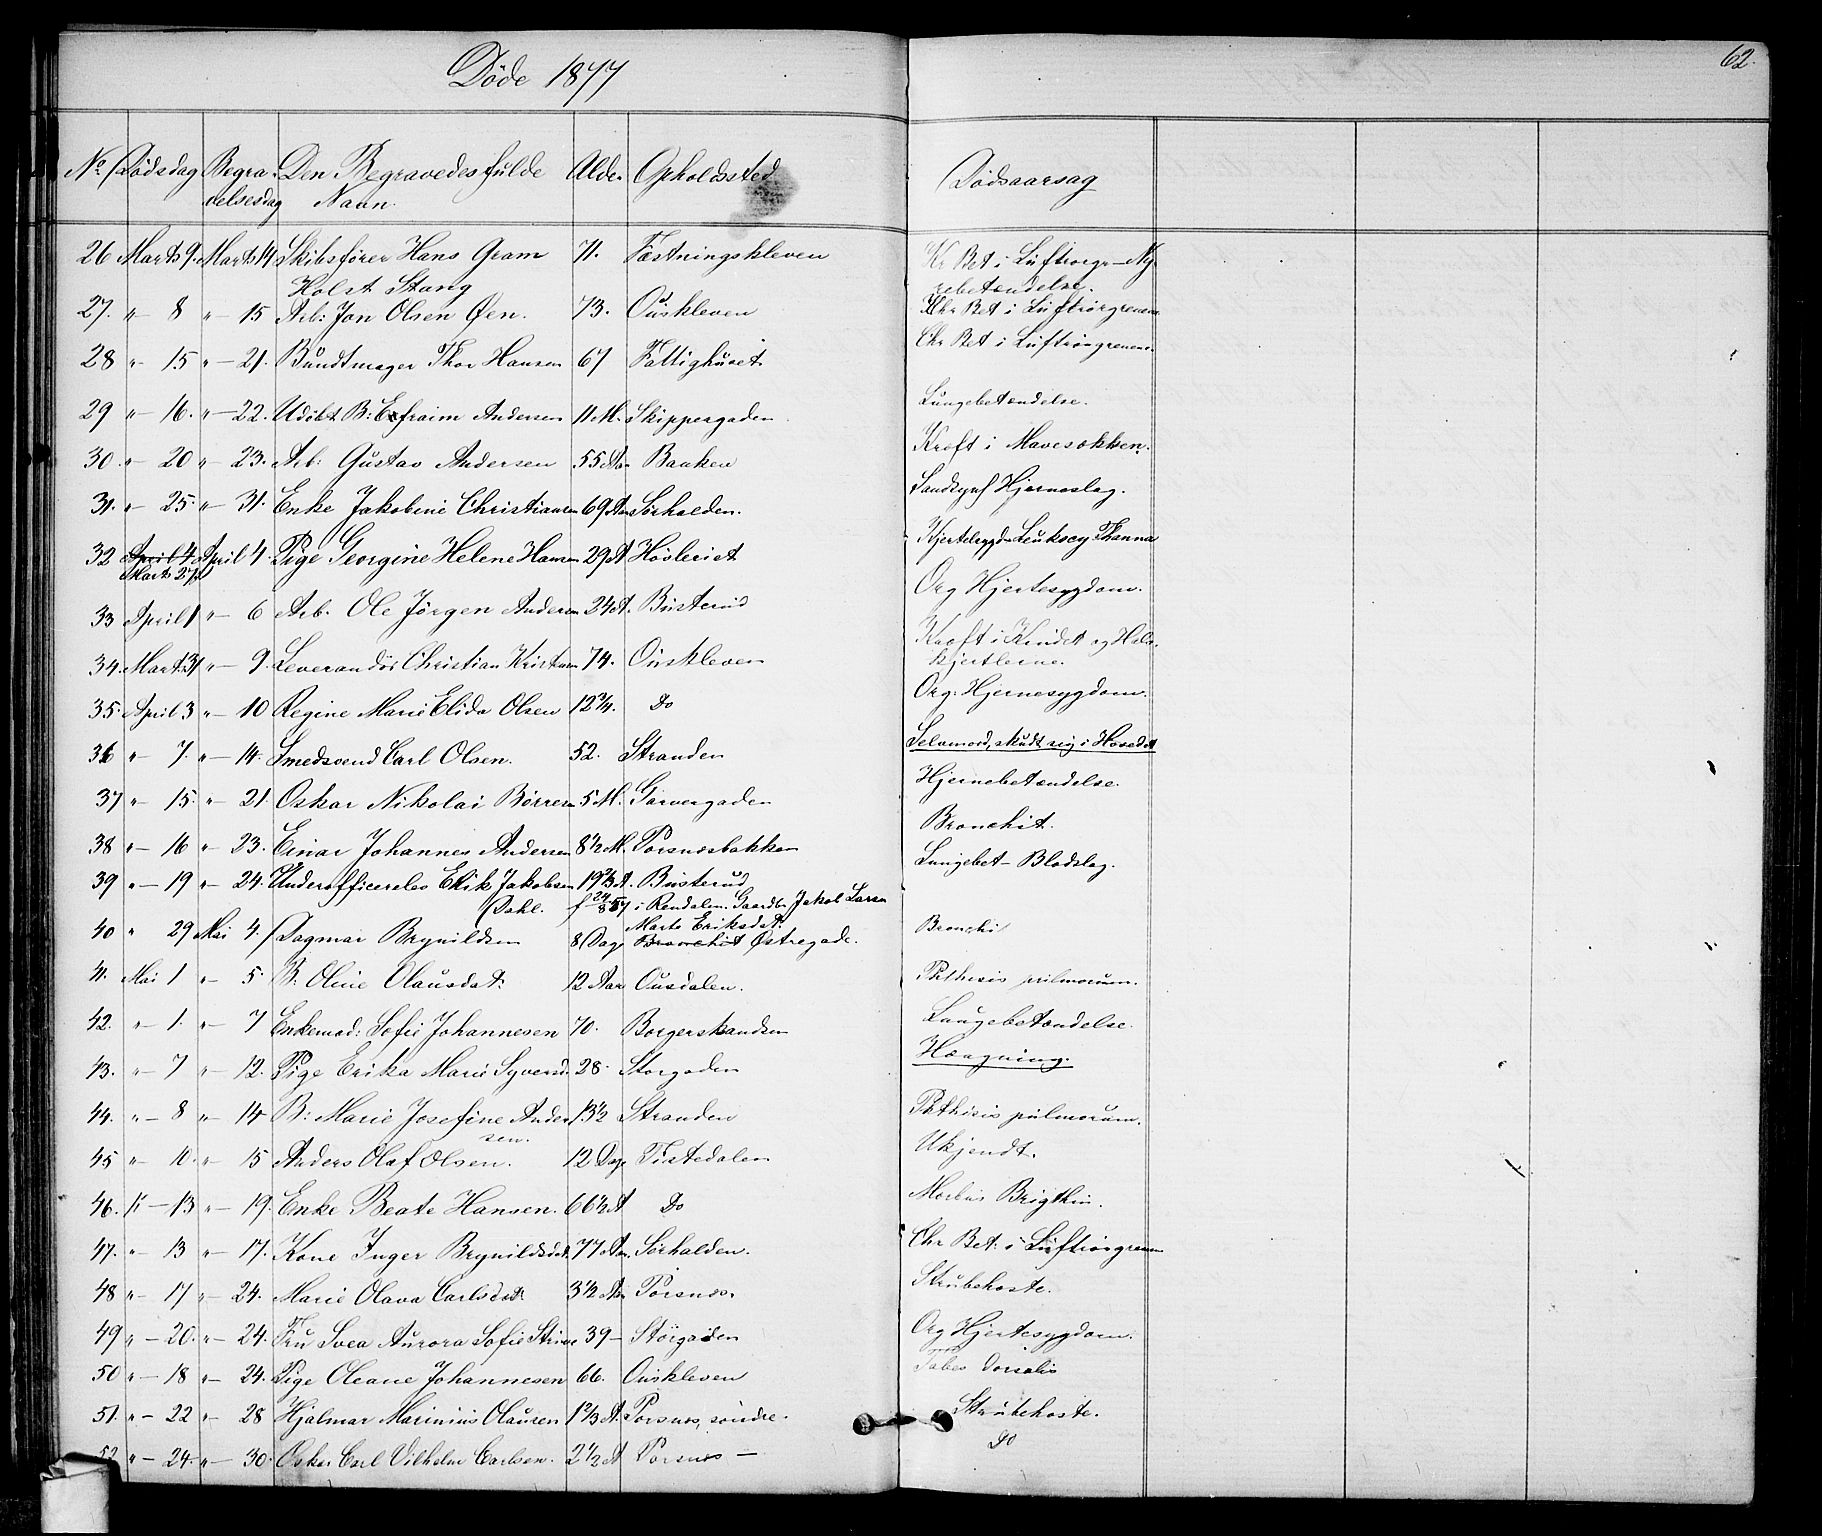 Døde 1877
62.
No Dødsdag Begra- Den Begravedes fulde Alder Opholdssted Dødsaarsag
velsesdag Navn.
26 Marts 9. Marts 14 Skibsfører Hans Gram 71. Fæstningskleven Kr Bet i Luftrørgr — Ny
Holst Stang rebetændelse.
27. " 8 " 15 Arb: Jon Olsen Øen. 73. Ouskleven Chr Bet i Luftrørgrenene
28 " 15 " — 21. Bundtmager Thor Hansen 67 Fattighuset Chr Bet i Luftrørgrenene
29 " — 16. " — 22. Udøbt B: Efraim Andersen 11 M. Skippergaden Lungebetændelse.
30. " — 20 " — 23. Arb: Gustav Andersen 55 Aar Banken Kræft i Mavesækken.
31. " — 25. " — 31. Enke Jakobine Christiansen 69 Aar Sørhalden. Sandsynl Hjerneslag.
32 April 4 April 4. Pige Georgine Helene Hansen 29 A Høvleriet
Marts 27
33 April 1 " — 6 Arb. Ole Jørgen Andersen 24 A. Busterud Org Hjertesygdom.
34. Marts 31 " — 9. Leverandør Christian Kristensen 74. Ouskleven Kræft i Kindet og Hals
kjertlerne.
35. April 3 " — 10 Regine Marie Elida Olsen 12 3/4. Do Org. Hjernesygdom.
36 " 7. " — 14. Smedsvend Carl Olsen. 52. Stranden Selvmord, skudt sig i Hovedet
37 " — 15. " — 21. Oskar Nikolai Børresen 5 M. Garvergaden Hjernebetændelse.
38 " — 16 " — 23. Einar Johannes Andersen 8 1/2 M. Porsnæsbakken Bronchit.
39 " — 19 " — 24. Underofficerelev Erik Jakobsen 19 2/3 A. Busterud Lungebet — Blodslag.
Dahl. f 24/8 57 i Rendalen. Gaardbr Jakob Larsen
Marte Eriksdat:
40 " 29 Mai 4. Dagmar Brynildsen 8 Dage Bronchit Østregade. Bronchi
41. Mai 1 " — 5. B: Oline Olausdat: 12 Aar Ousdalen. Phthisis pulmorum.
42. " — 1. " — 7 Enkemad: Sofie Johannesen 70. Borgerskandsen Lungebetændelse.
43. " — 7 " — 12. Pige Erika Marie Syversd. 28. Storgaden Hængning.
44. " — 8 " — 14 B: Marie Josefine Ander 13 1/2 Stranden Phthisis pulmorum.
sen.
45 " — 10. " — 15 Anders Olaf Olsen. 12 Dage Tistedalen Ukjendt.
46. " — 13 " — 19. Enke Beate Hansen. 66 1/2 A Do Morbus Brigthii.
47. " — 13 " — 17. Kone Inger Brynildsdat. 77 Aar Sørhalden. Chr Bet: i Luftrørgrenene
48 " — 17 " — 24. Marie Olava Carlsdat 3 1/2 Aar Porsnæs. Strubehoste.
49 " — 20. " — 24. Fru Svea Aurora Sofie 39 — Storgaden Org Hjertesygdom.
50 " — 18 " — 24. Pige Oleane Johannesen 66. Ouskleven Tabes Dorsalis
51. " — 22 " — 28 Hjalmar Marinius Olausen 1 2/3 A. Porsnæs, søndre. Strubehoste.
52 " — 24. " — 30. Oskar Carl Vilhelm Carlsen. 2 1/2 A Porsnæs — Do